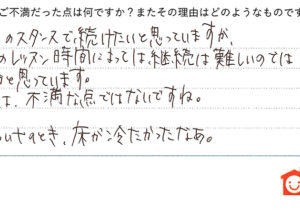 ご不満だった点は何ですか？またその理由はどのようなものです
のスタンスで続けたいと思っていますが、
のレッスン時間によっては継続は難しいのでは
と思っています。
は、不満な点ではないですね。
のとき、床が冷たかったなあ。